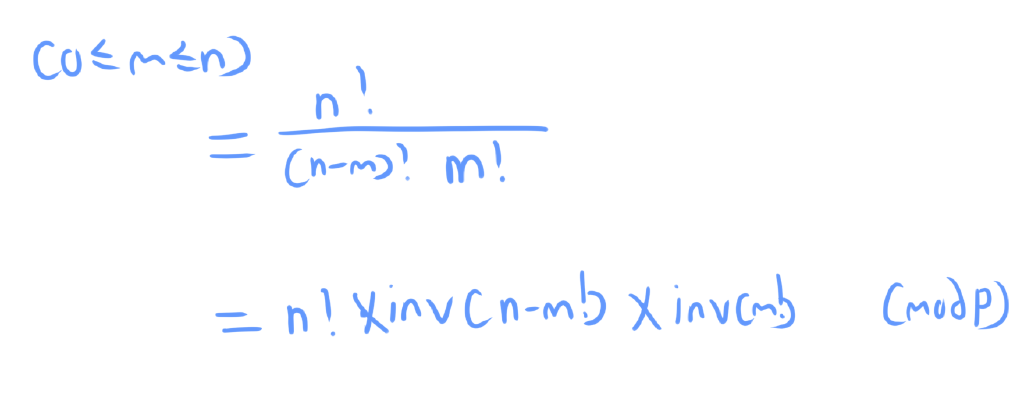 (0≤m≤n)
n!
=
(n-m)! m!
= n! × inv(n-m!) × inv(m!) (mod p)